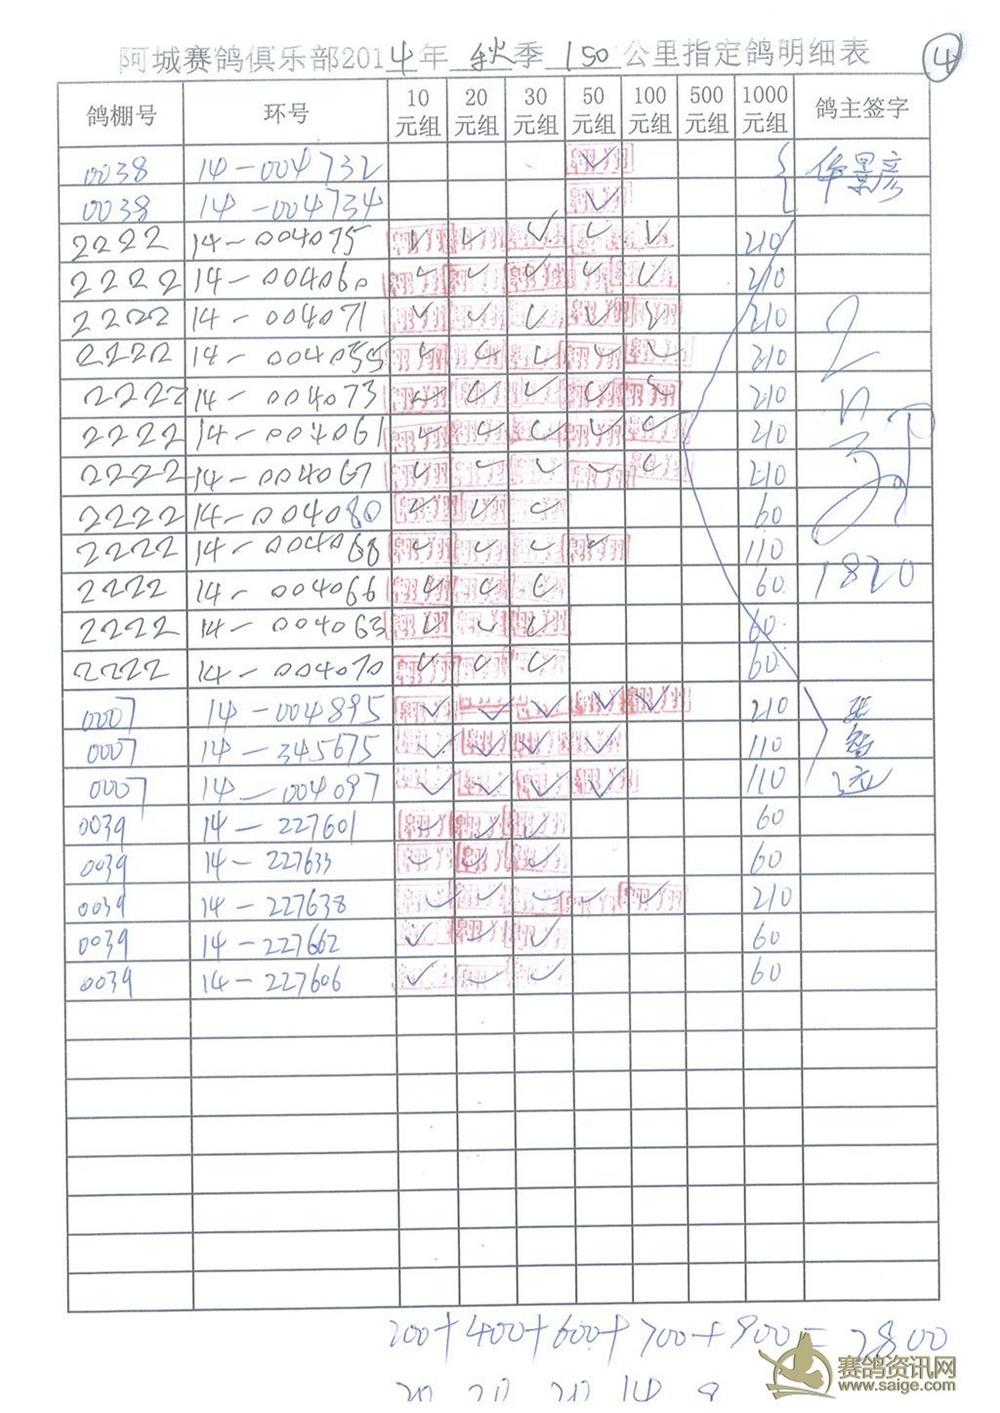 阿城赛鸽俱乐部2014年 秋季 150 公里指定鸽明细表 ④
鸽棚号 环号 10元组 20元组 30元组 50元组 100元组 500元组 1000元组 鸽主签字
0038 14-004732 ✓
0038 14-004734 ✓
2222 14-004075 ✓ ✓ ✓ ✓ ✓ 210
2222 14-004060 ✓ ✓ ✓ ✓ ✓ 210
2222 14-004071 ✓ ✓ ✓ ✓ ✓ 210
2222 14-004055 ✓ ✓ ✓ ✓ ✓ 210
2222 14-004073 ✓ ✓ ✓ ✓ ✓ 210
2222 14-004061 ✓ ✓ ✓ ✓ ✓ 210
2222 14-004067 ✓ ✓ ✓ ✓ ✓ 210
2222 14-004080 ✓ ✓ ✓ 60
2222 14-004068 ✓ ✓ ✓ ✓ 110
2222 14-004066 ✓ ✓ ✓ 60 1820
2222 14-004063 ✓ ✓ ✓ 60
2222 14-004070 ✓ ✓ ✓ 60
0007 14-004895 ✓ ✓ ✓ ✓ ✓ 210
0007 14-345675 ✓ ✓ ✓ ✓ 110
0007 14-004097 ✓ ✓ ✓ ✓ 110
0039 14-227601 ✓ ✓ ✓ 60
0039 14-227633 ✓ ✓ ✓ 60
0039 14-227638 ✓ ✓ ✓ ✓ ✓ 210
0039 14-227662 ✓ ✓ ✓ 60
0039 14-227606 ✓ ✓ ✓ 60
200+400+600+700+900=2800
20 20 20 14 9
赛鸽资讯网
www.saige.com